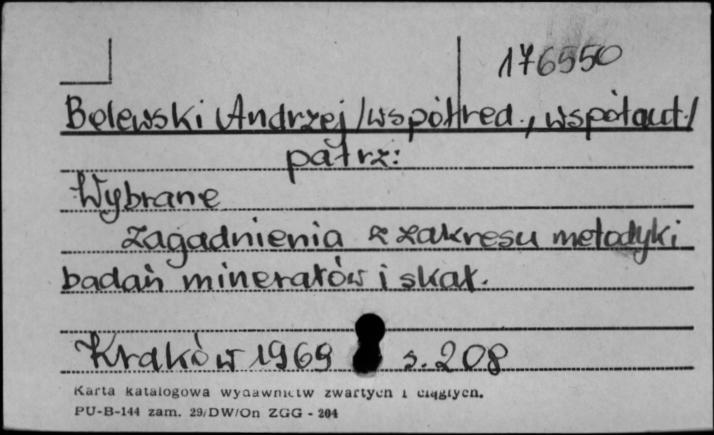 176550
Bolewski Andrzej /współred., współaut./
patrz:
Wybrane
zagadnienia z zakresu metodyki
badań minerałów i skał.
Kraków 1969 s. 208
Karta katalogowa wydawnictw zwartych i ciągłych.
PU-B-144 zam. 29/DW/On ZGG - 204